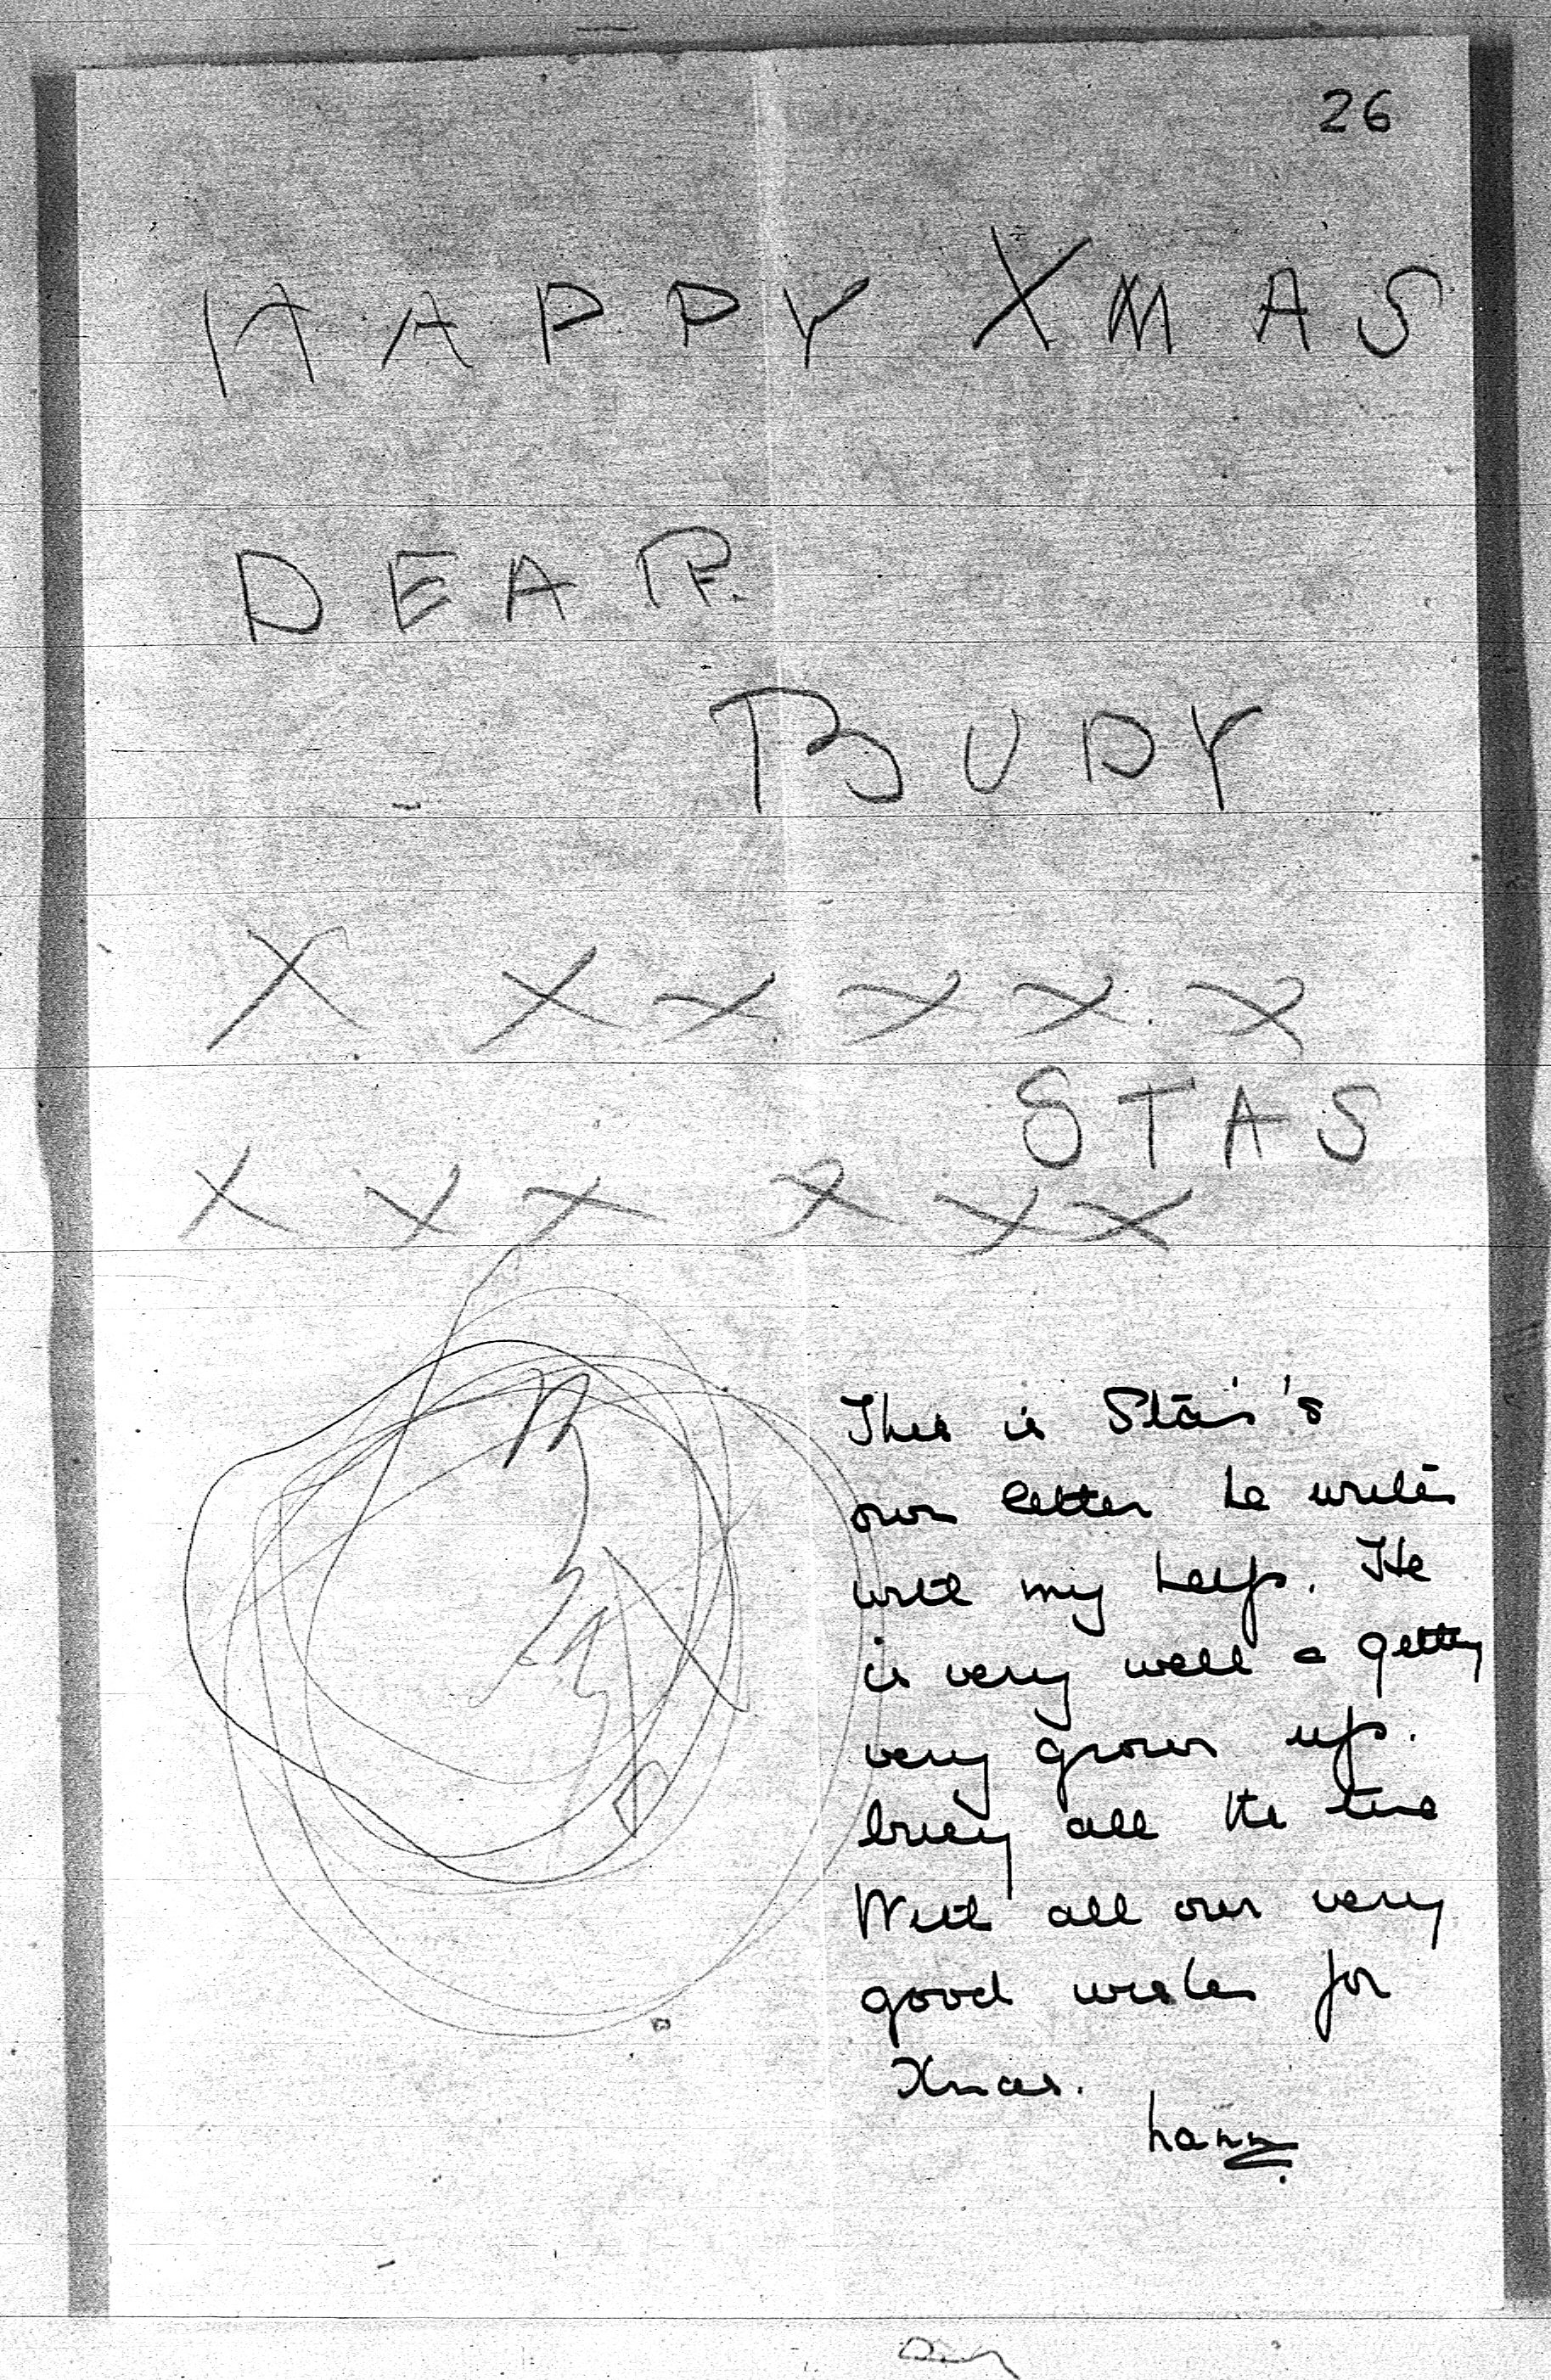 26
HAPPY XMAS
DEAR
BUDY
X X X X X X
STAS
X X X X X X
This is Stas's
own letter he writes
with my help. He
is very well & getting
very grown up.
busy all the time
With all our very
good wishes for
Xmas.